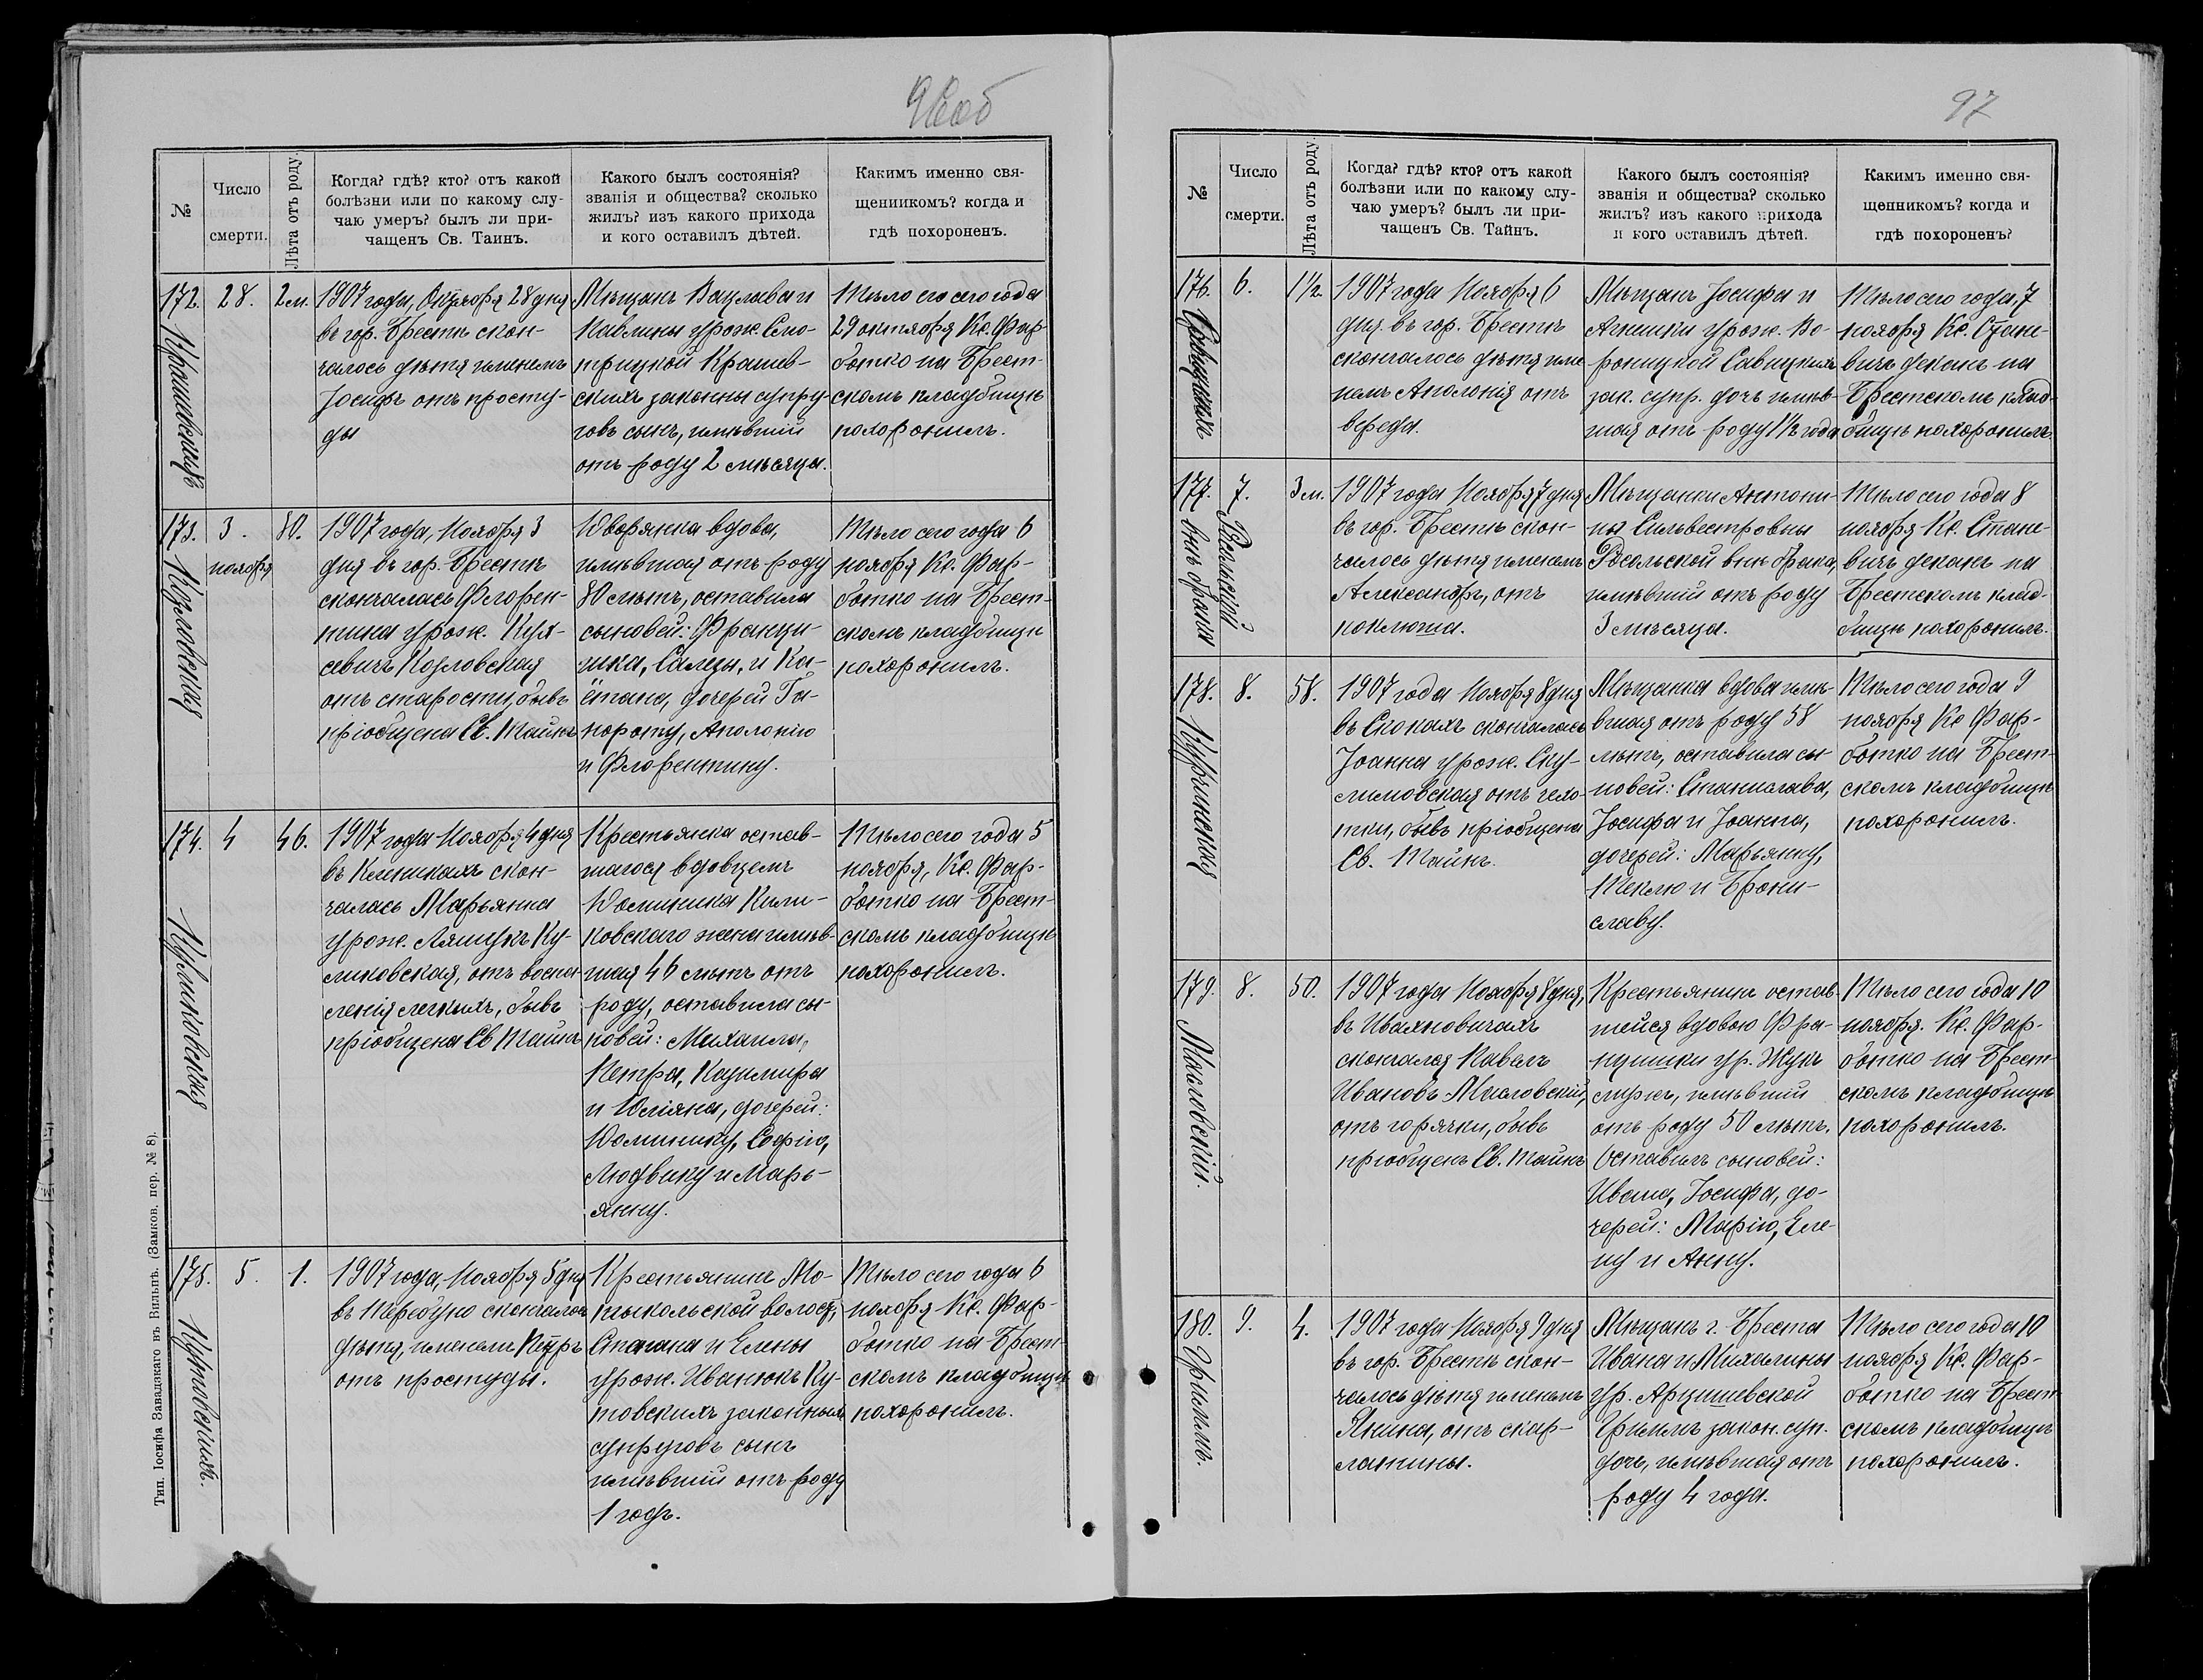 96об
№
Число
смерти.
Лѣта отъ роду.
Когда? гдѣ? кто? отъ какой
болѣзни или по какому слу-
чаю умеръ? былъ ли при-
чащенъ Св. Таинъ.
Какого былъ состоянія?
званія и общества? сколько
жилъ? изъ какого прихода
и кого оставилъ дѣтей.
Какимъ именно свя-
щенникомъ? когда и
гдѣ похороненъ.
172.
28.
2 м.
1907 года, Октября 28 дня
въ гор. Брестѣ скон-
чалось дитя именемъ
Іосифъ отъ просту-
ды
Мѣщанъ Вацлава и
Павлины урож. Смо-
трицкой Крашев-
скихъ законныхъ супру-
говъ сынъ, имѣвшій
отъ роду 2 мѣсяца.
Тѣло его сего года
29 октября Кс. Фар-
ботко на Брест-
скомъ кладбищѣ
похоронилъ.
173.
Козловская
3.
ноября
80.
1907 года, Ноября 3
дня въ гор. Брестѣ
скончалась Флорен-
тина урож.
Козловская
отъ старости, бывъ
пріобщена Св. Тайнъ
Дворянка вдова,
имѣвшая отъ роду
80 лѣтъ, оставила
сыновей: Франци-
шка, Салезы, и Ка-
етана, дочерей Го-
норату, Аполонію
и Флорентину.
Тѣло сего года 6
ноября Кс. Фар-
ботко на Брест-
скомъ кладбищѣ
похоронилъ.
174.
Куликовская
4
46.
1907 года Ноября 4 дня
въ Клейникахъ скон-
чалась Марьянна
урож. Ляшукъ Ку-
ликовская, отъ воспа-
ленія легкихъ, бывъ
пріобщена Св Тайнъ
Крестьянка остав-
шагося вдовцемъ
Доминика Кули-
ковскаго жена имѣв-
шая 46 лѣтъ отъ
роду, оставила сы-
новей: Михаила,
Петра, Казимира
и Юліяна, дочерей:
Доминику, Софію,
Людвику и Марь-
янну.
Тѣло сего года 5
ноября, Кс. Фар-
ботко на Брест-
скомъ кладбищѣ
похоронилъ.
175.
Кутовскихъ.
5.
1.
1907 года, Ноября 5 дня
въ Теребуно скончалось
дѣтя, именемъ Петръ
отъ простуды.
Крестьянинъ Мо-
тыкальской волости,
Степана и Елены
урож. Иванюкъ Ку-
товскихъ законныхъ
супруговъ сынъ
имѣвшій отъ роду
1 годъ.
Тѣло сего года 6
ноября Кс. Фар-
ботко на Брест-
скомъ кладбищѣ
похоронилъ.
Тип. Іосифа Завадзкаго въ Вильнѣ. (Замков. пер. № 8).
97
№
Число
смерти.
Лѣта отъ роду.
Когда? гдѣ? кто? отъ какой
болѣзни или по какому слу-
чаю умеръ? былъ ли при-
чащенъ Св. Тайнъ.
Какого былъ состоянія?
званія и общества? сколько
жилъ? изъ какого прихода
и кого оставилъ дѣтей.
Какимъ именно свя-
щенникомъ? когда и
гдѣ похороненъ?
176.
Савицкихъ
6.
1½
1907 года Ноября 6
дня въ гор. Брестѣ
скончалось дѣтя име-
немъ Аполонія отъ
вереда.
Мѣщанъ Іосифа и
Агнешки урож. Во-
роницкой Савицкихъ
зак. супр. дочь имѣв-
шая отъ роду 1½ года
Тѣло сего года, 7
ноября Кс. Стане-
вичъ деканъ на
Брестскомъ клад-
бищѣ похоронилъ.
177.
внѣ брака
7.
3 м.
1907 года Ноября 7 дня
въ гор. Брестѣ скон-
чалось дѣтя именемъ
Александръ, отъ
коклюша.
Мѣщанки Антони-
ны Сильвестровны
Росольской внѣ брака,
имѣвшій отъ роду
3 мѣсяца.
Тѣло сего года 8
ноября Кс. Стане-
вичъ деканъ на
Брестскомъ клад-
бищѣ похоронилъ.
178.
8.
58.
1907 года Ноября 8 дня
въ Скокахъ скончалась
Іоанна урож. Ску-
лимовская отъ чахо-
тки, бывъ пріобщена
Св. Тайнъ.
Мѣщанка вдова имѣ-
вшая отъ роду 58
лѣтъ, оставила сы-
новей: Станислава,
Іосифа и Іоанна,
дочерей: Марьянну,
Теклю и Брони-
славу.
Тѣло сего года 9
ноября Кс Фар-
ботко на Брест-
скомъ кладбищѣ
похоронилъ.
179.
Мысловскій.
8.
50.
1907 года Ноября 8 дня,
въ Ивахновичахъ
скончался Павелъ
Ивановъ Мысловскій,
отъ горячки, бывъ
пріобщенъ Св. Тайнъ
Крестьянинъ остав-
шейся вдовою Фра-
нцишки ур. Жукъ
мужъ, имѣвшій
отъ роду 50 лѣтъ.
Оставилъ сыновей:
Ивана, Іосифа, до-
черей: Марію, Еле-
ну и Анну.
Тѣло сего года 10
ноября. Кс. Фар-
ботко на Брест-
скомъ кладбищѣ
похоронилъ.
180.
9.
4.
1907 года Ноября 9 дня
въ гор. Брестѣ скон-
чалось дѣтя именемъ
Янина, отъ скар-
латины.
Мѣщанъ г. Бреста
Ивана и Михалины
ур. Арцишевской
закон. суп.
дочь, имѣвшая отъ
роду 4 года.
Тѣло сего года 10
ноября Кс. Фар-
ботко на Брест-
скомъ кладбищѣ
похоронилъ.